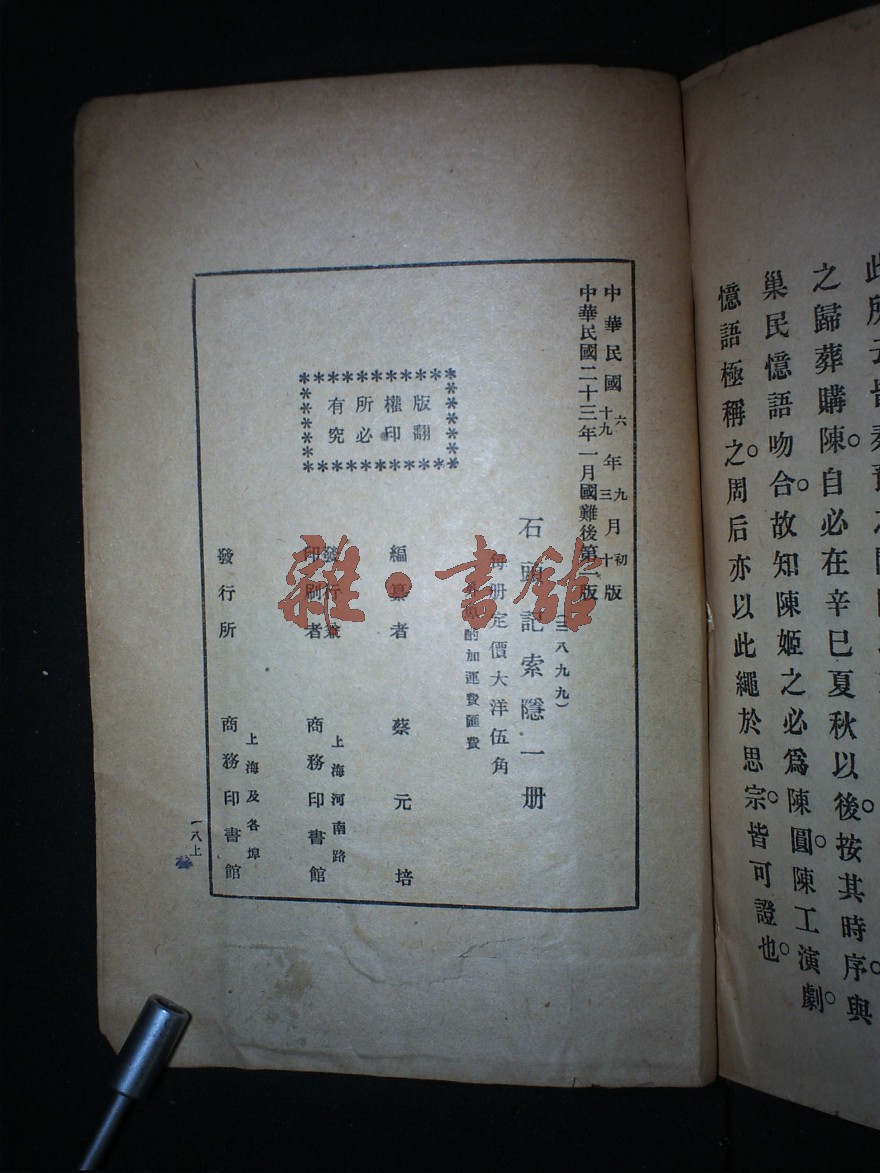 此所
之歸葬購陳。自必在辛巳夏秋以後。按其時序與
巢民憶語吻合。故知陳姬之必爲陳圓。陳工演劇。
憶語極稱之。周后亦以此繩於思宗。皆可證也。
中華民國六年九月初版
十九三十
中華民國二十三年一月國難後第一版
(三八九九)
石頭記索隱一册
每册定價大洋伍角
酌加運費匯費
編纂者 蔡元培
發行兼印刷者 上海河南路 商務印書館
發行所 上海及各埠 商務印書館
版權所有
翻印必究
一八上
雜·書館